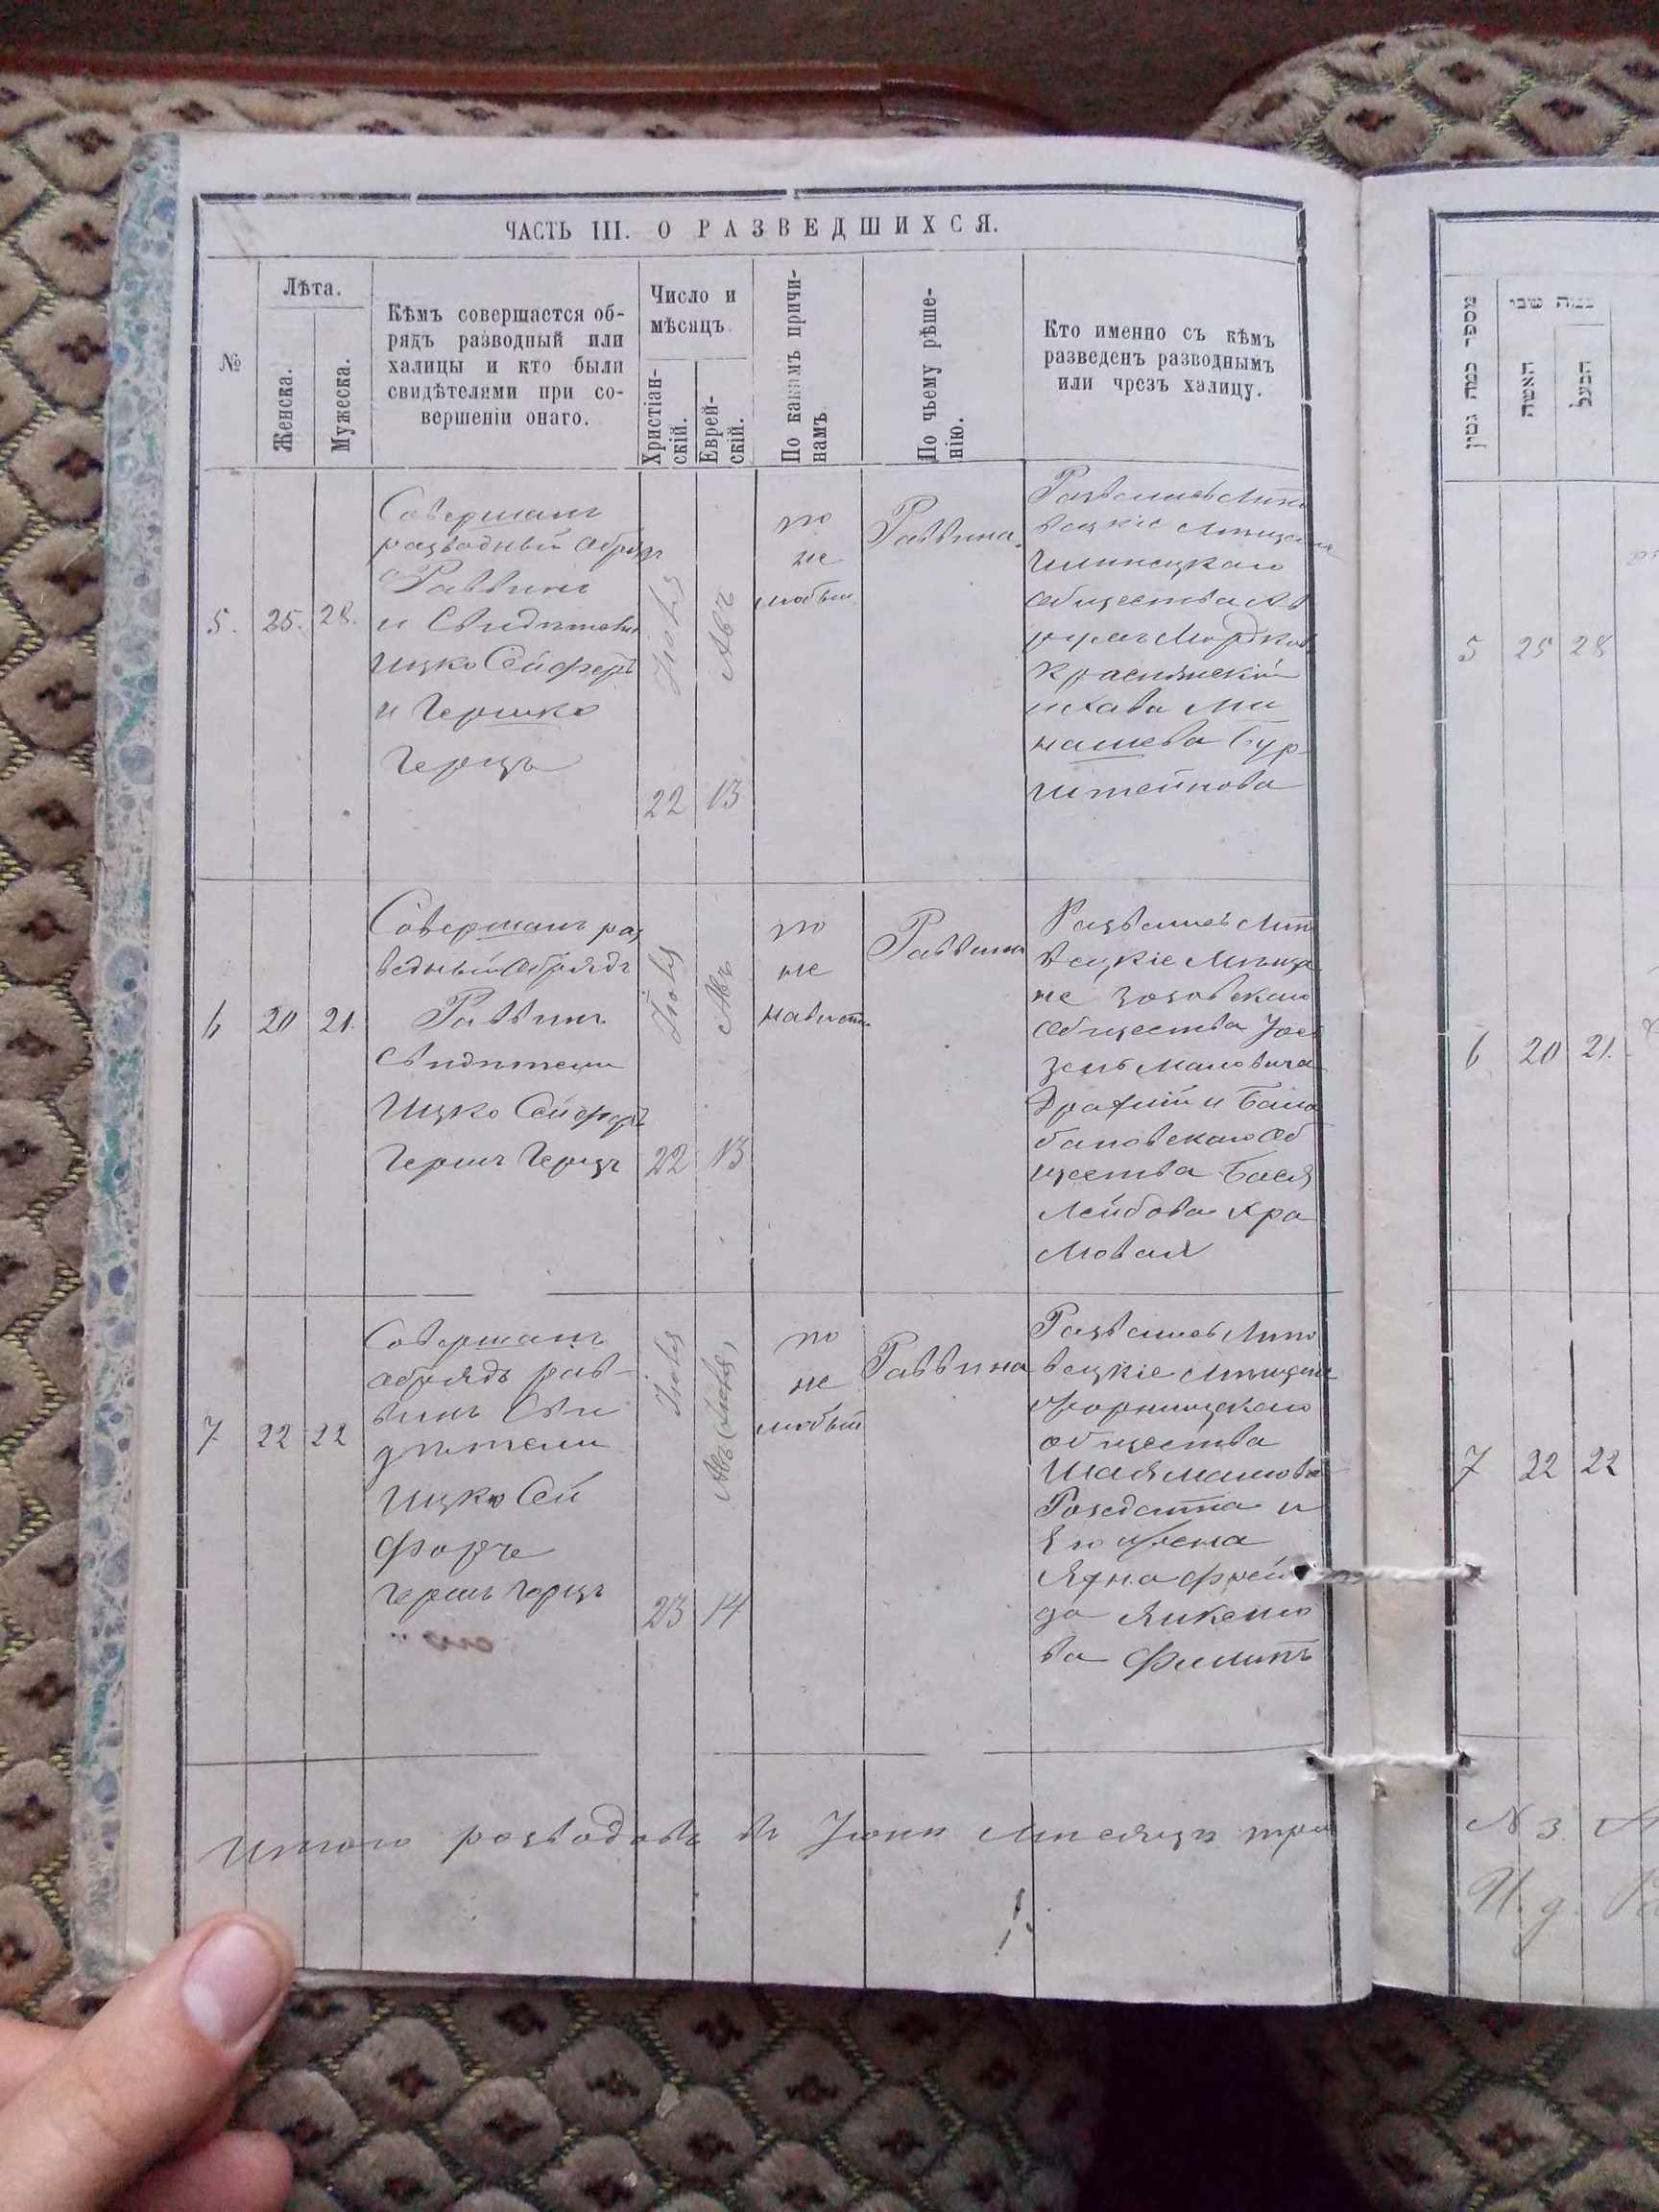 ЧАСТЬ III. О РАЗВЕДШИХСЯ.
№
Лѣта.
Женска.
Мужеска.
Кѣмъ совершается об-
рядъ разводный или
халицы и кто были
свидѣтелями при со-
вершеніи онаго.
Число и
мѣсяцъ.
Христіан-
скій.
Еврей-
скій.
По какимъ причи-
намъ.
По чьему рѣше-
нію.
Кто именно съ кѣмъ
разведенъ разводнымъ
или чрезъ халицу.
5.
25.
28.
Совершалъ
разводный обрядъ
Раввинъ
и Свидѣтели
Ицко Сейферъ
и Гершко
Герцъ
Іюля
22
Авъ
13
по
не
любви
Раввина
Развелись Липо
вецкіе Мещане
Илинецкаго
общества Ав
румъ Мордков
Краснянскій
и Хава Ми
нашева Бур
штейнова
6
20
21.
Совершалъ раз
водный обрядъ
Раввинъ
Свидѣтели
Ицко Сейферъ
Гершъ Герцъ
Іюля
22
Авъ
13
по
не
нависти
Раввина
Развелись Лип
вецкіе Мѣща
не Зозовскаго
общества
Бала
бановскаго Об
щества Бася
Лейбова Хра
мовая
7
22
22
Совершалъ
обрядъ рав-
винъ Сви
дѣтели
Ицко Сей
феръ
Гершъ Герцъ
Іюля
23
Авъ
14
по
не
любви
Раввина
Развелись Липо
вецкіе Мещане
общества
и
его жена
Фрей
да Янкелю
ва Филипъ
Итого разводовъ въ Іюлѣ Мѣсяцѣ три
מספר כמה גטין
כמה שני
האשה
הבעל
5
25
28
6
20
21.
7
22
22
№ 3.
И. д.